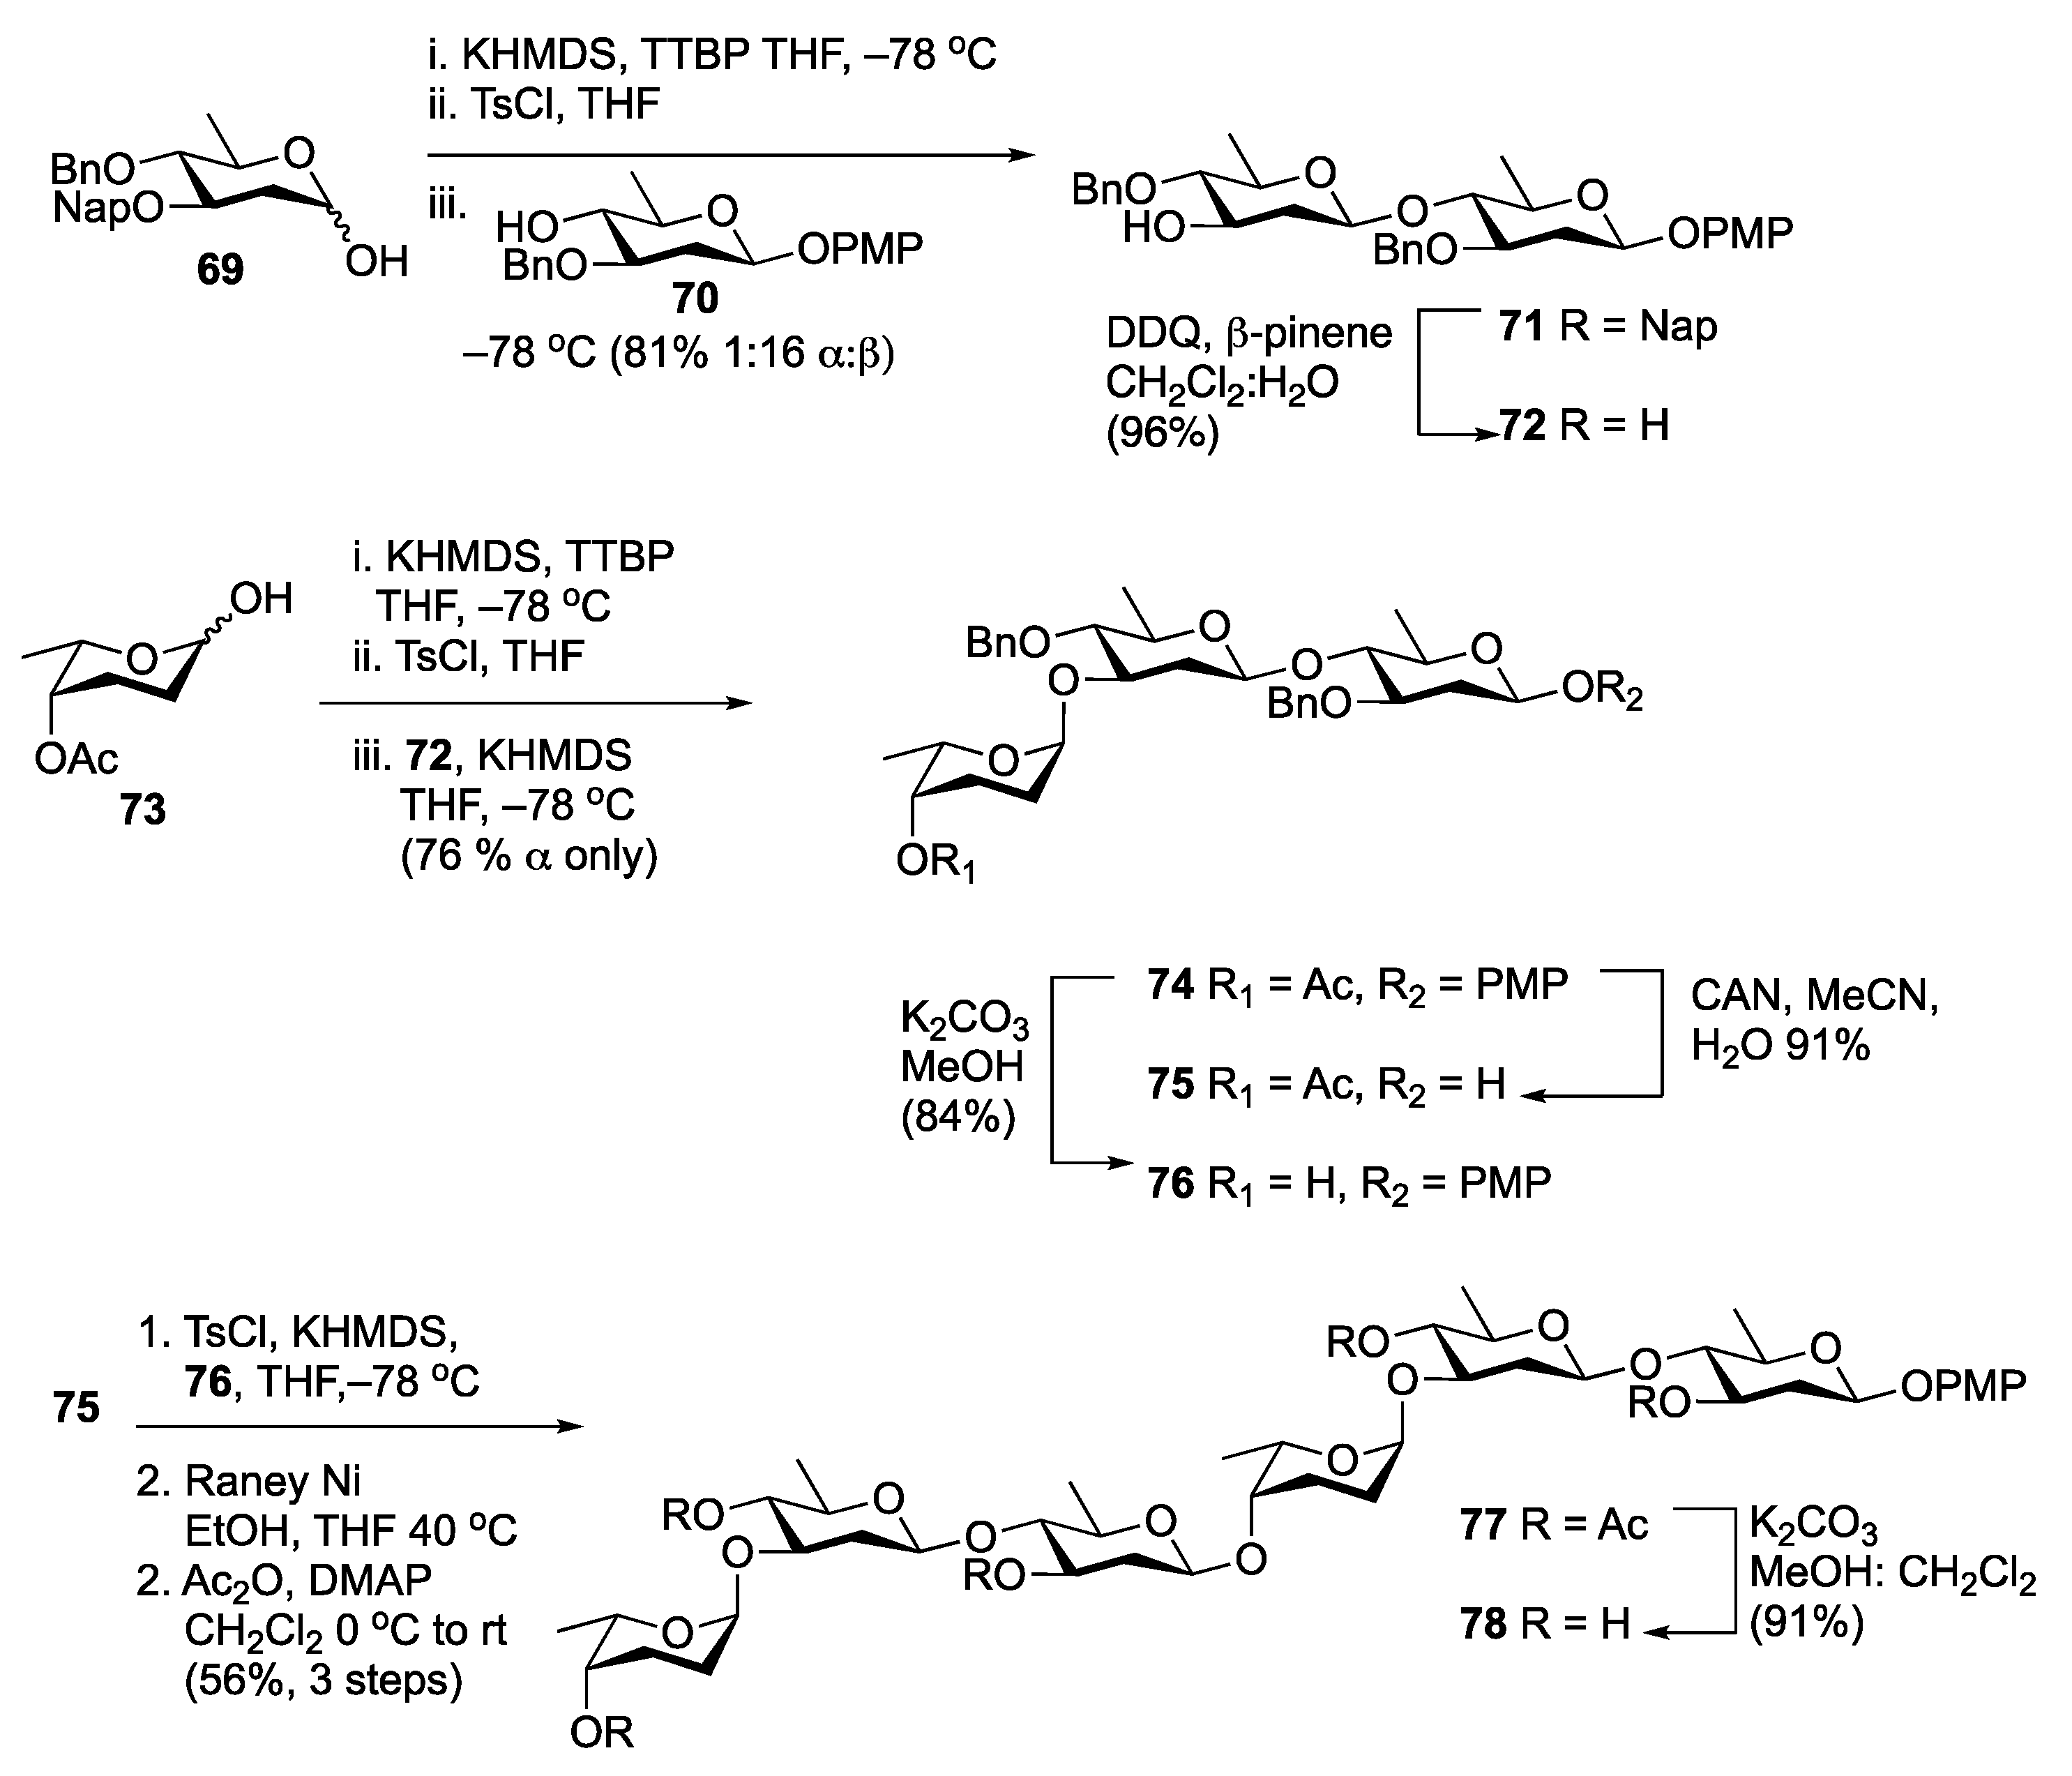 i. KHMDS, TTBP THF, –78 °C
ii. TsCl, THF
BnO
O
NapO
OH
69
iii.
HO
O
BnO
OPMP
70
–78 °C (81% 1:16 α:β)
BnO
O
HO
O
O
BnO
OPMP
DDQ, β-pinene
CH₂Cl₂:H₂O
(96%)
71 R = Nap
72 R = H
OH
O
OAc
73
i. KHMDS, TTBP
THF, –78 °C
ii. TsCl, THF
iii. 72, KHMDS
THF, –78 °C
(76 % α only)
BnO
O
O
O
O
BnO
OR₂
O
OR₁
K₂CO₃
MeOH
(84%)
74 R₁ = Ac, R₂ = PMP
75 R₁ = Ac, R₂ = H
76 R₁ = H, R₂ = PMP
CAN, MeCN,
H₂O 91%
75
1. TsCl, KHMDS,
76, THF,–78 °C
2. Raney Ni
EtOH, THF 40 °C
2. Ac₂O, DMAP
CH₂Cl₂ 0 °C to rt
(56%, 3 steps)
RO
O
O
O
O
RO
OPMP
O
RO
O
O
O
O
RO
O
O
OR
77 R = Ac
78 R = H
K₂CO₃
MeOH: CH₂Cl₂
(91%)